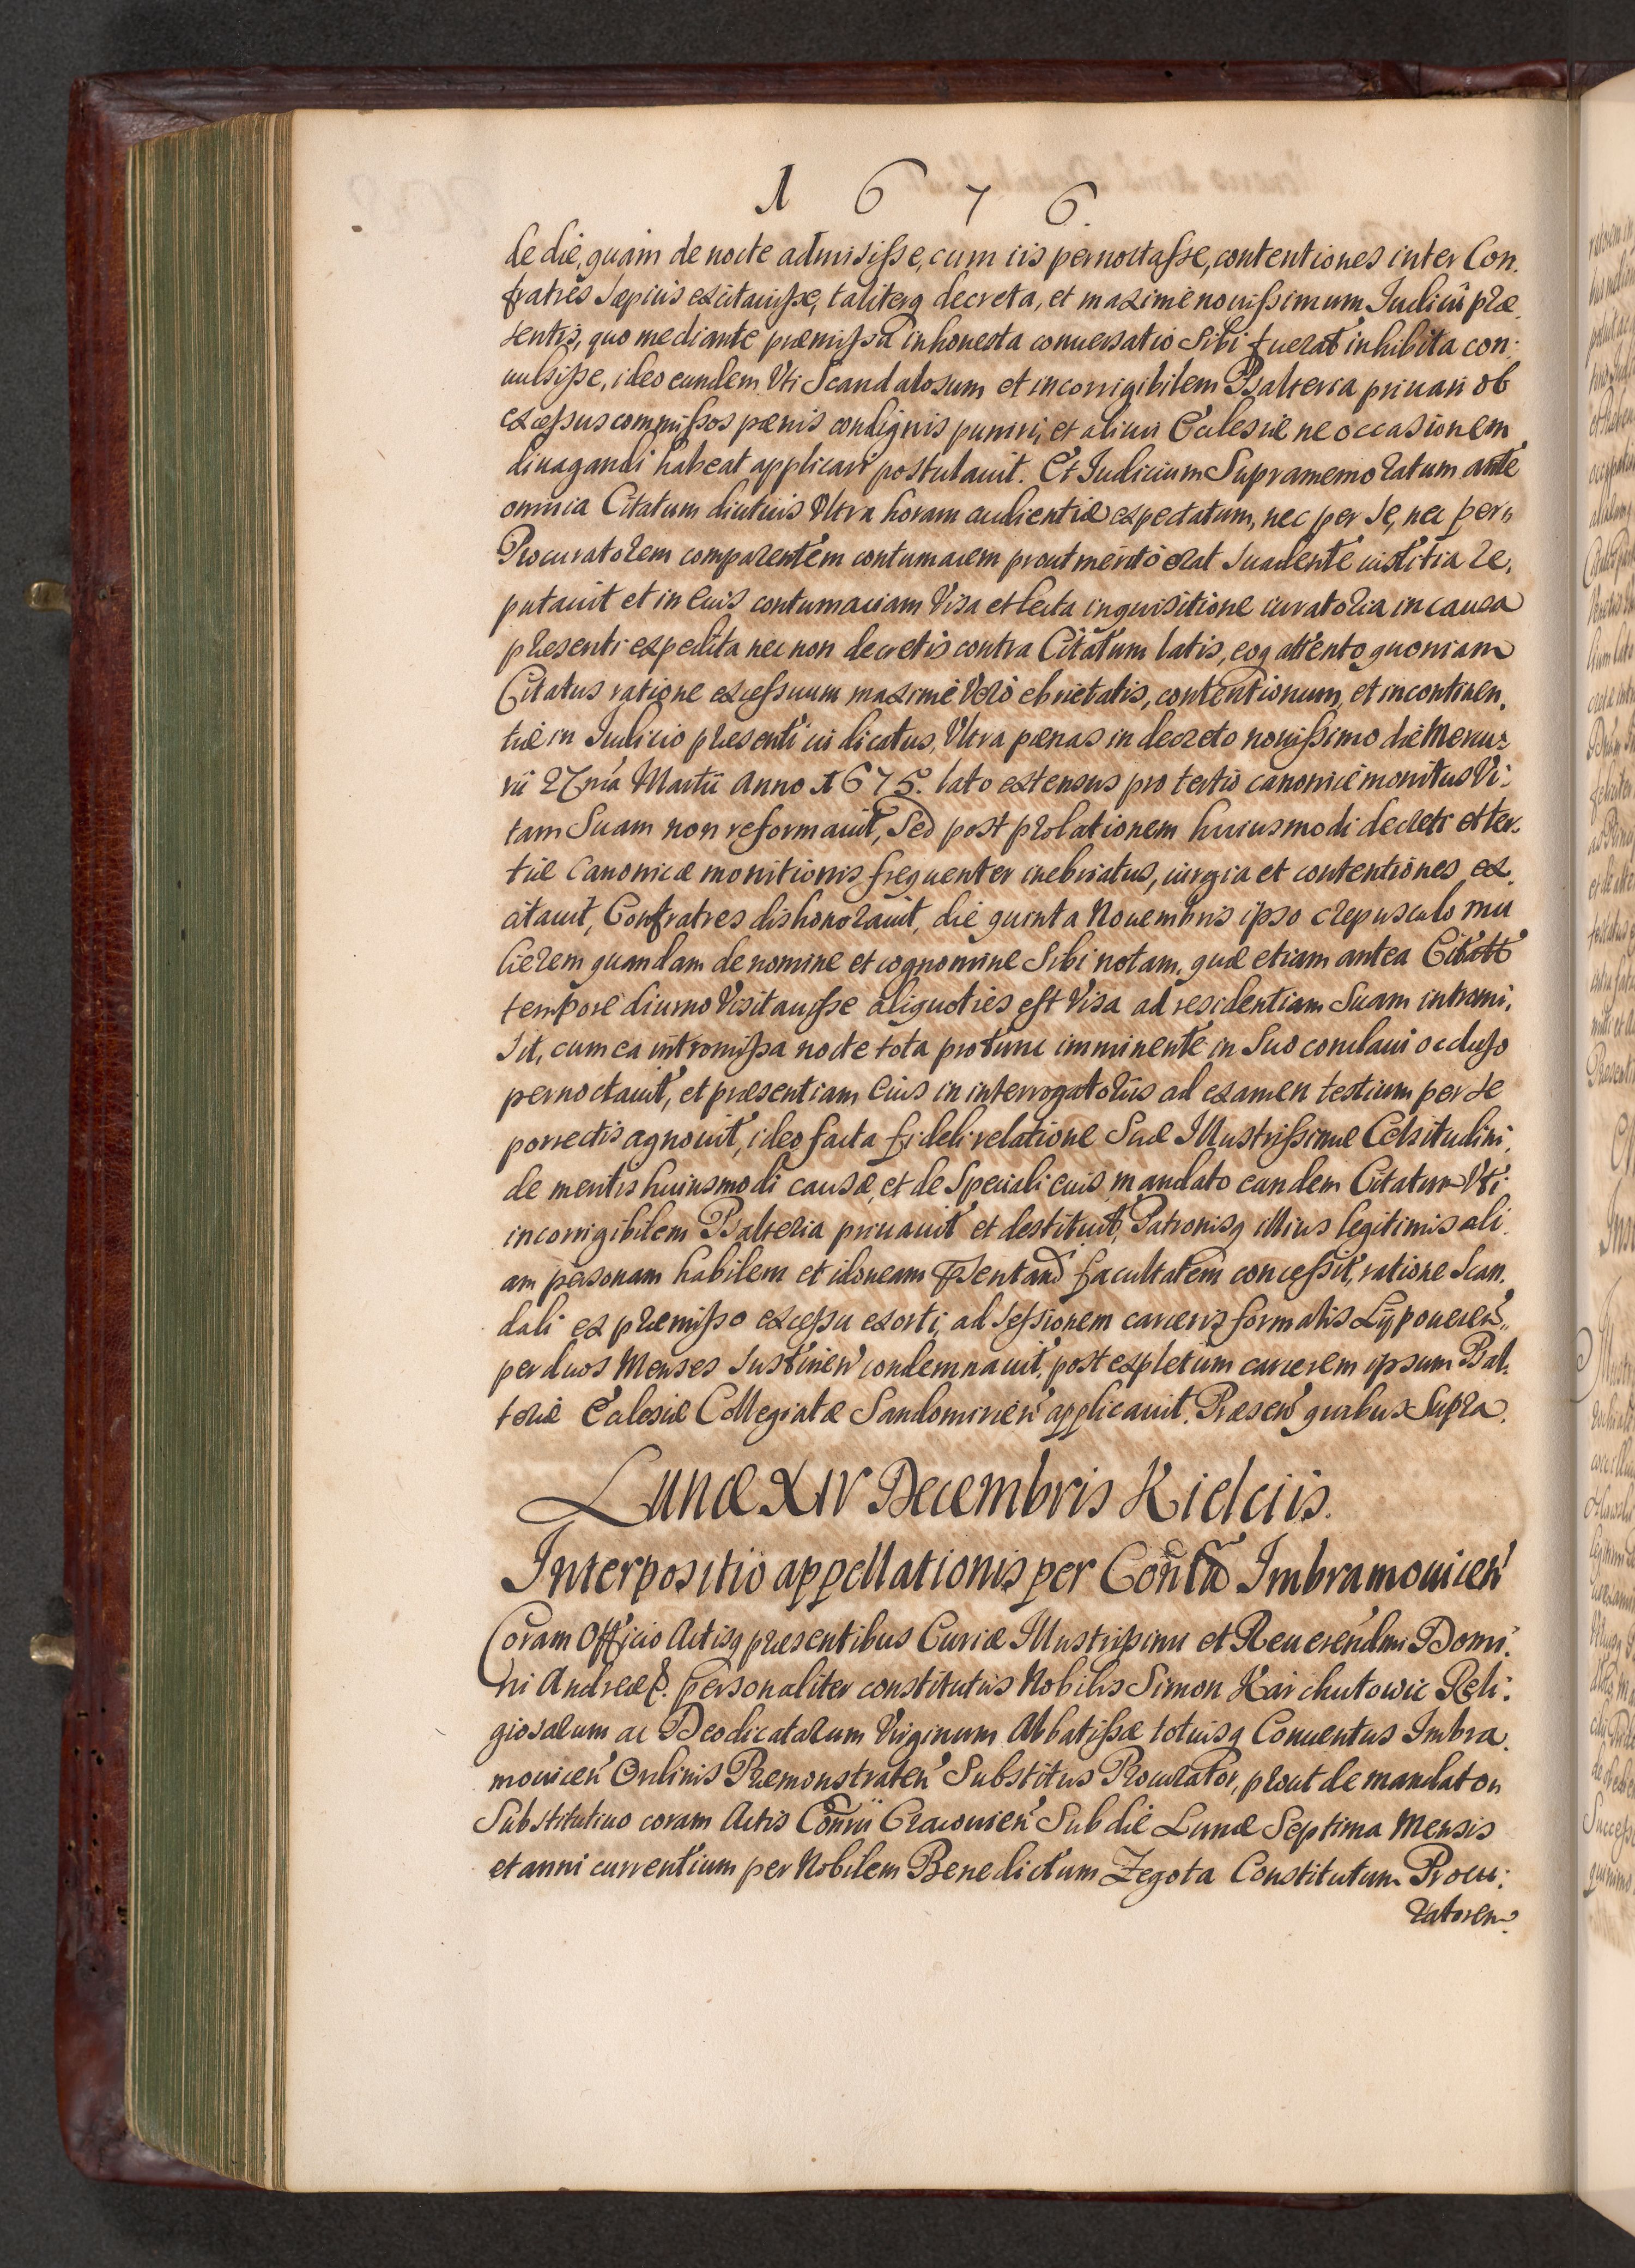 1676.
de die, quam de nocte admisisse, cum iis pernoctasse, contentiones inter Con.
fratres sæpius excitauisse, taliterq decreta, et maxime nouissimum Iudicij præ.
sentis, quo mediante præmissa inhonesta conuersatio Sibi fuerat inhibita con:
uulsisse, ideo eundem Vti Scandalosum et incorrigibilem Psalteria priuari ob
excessus commissos pœnis condignis puniri, et alicui Ecclesiæ ne occasionem
diuagandi habeat applicari postulauit. Et Iudicium Supramemoratum ante
omnia Citatum diutius Vltra horam audientiæ expectatum, nec per se, nec per
Procuratorem comparentem contumacem prout merito erat Suadente iustitia re.
putauit et in Eius contumaciam Visa et lecta inquisitione iuratoria in causa
præsenti expedita nec non decretis contra Citatum latis, eoq attento quoniam
Citatus ratione excessuum maxime Vero ebrietatis, contentionum, et incontinen.
tiæ in Iudicio præsenti iudicatus, Vltra pœnas in decreto nouissimo die Mercu:
rii 27ma Martii Anno 1675. lato extensus pro tertio canonice monitus Vi:
tam Suam non reformauit, Sed post prolationem huiusmodi decreti et ter.
tiæ Canonicæ monitionis frequenter inebriatus, iurgia et contentiones ex.
citauit, Confratres dishonorauit, die quinta Nouembris ipso crepusculo mu
lierem quandam de nomine et cognomine Sibi notam, quæ etiam antea Citatū
tempore diurno Visitauisse aliquoties est Visa ad residentiam Suam intromi.
sit, cum ea intromissa nocte tota protunc imminente in Suo conclaui occluso
pernoctauit, et præsentiam Eius in interrogatoriis ad examen testium per se
porrectis agnouit, ideo facta fideli relatione Suæ Illustrissimæ Celsitudini,
de mentis huiusmodi causæ, et de Speciali eius mandato eundem Citatum Vti
incorrigibilem Psalteria priuauit et destituit, Patronisq illius legitimis ali.
am personam habilem et idoneam pńtand facultatem concessit, ratione Scan.
dali ex præmisso excessu exorti, ad sessionem carceris formalis Lypouecen̄
per duos Menses Sustinen̄ condemnauit, post expletum carcerem ipsum Psal.
teriæ Ecclesiæ Collegiatæ Sandomirien̄ applicauit. Præsen̄ quibus Supra.
Lunæ XIV Decembris Kielciis.
Interpositio appellationis per Conv̄tū Imbramouicen̄
Coram Officio Actisq præsentibus Curiæ Illustrissimi et Reuerendmi Domi:
ni Andreæ E. personaliter constitutus Nobilis Simon Karchutowic Reli:
giosarum ac Deodicatarum Virginum Abbatissæ totiusq Conuentus Imbra.
mouicen̄ Ordinis Præmonstraten̄ Substitus Procurator, prout de mandato
Substitutiuo coram Actis Conrii Cracouien̄ Sub die Lunæ Septima Mensis
et anni currentium per Nobilem Benedictum Zegota Constitutum Procu:
ratorem